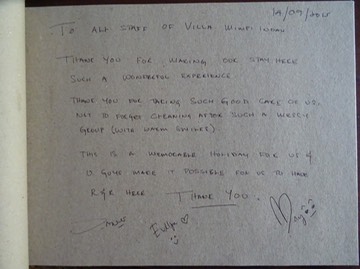 To all staff of Villa
Thank you for making our stay here
such a wonderful experience
Thank you for taking such good care of us,
not to forget cleaning after such a messy
group (with warm smiles)
This is a memorable holiday for us &
U guys made it possible for us to have
R&R here. Thank you.
Evelyn